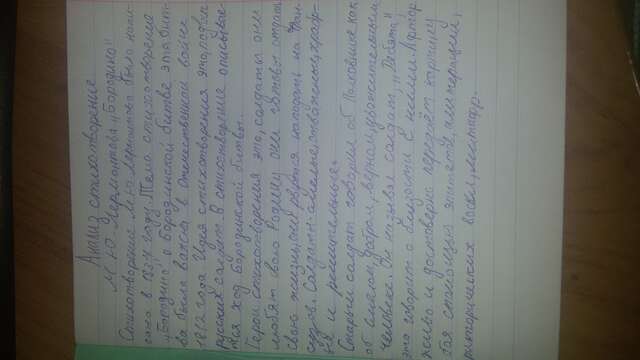 Анализ стихотворение
М.Ю. Лермонтова „Бородино"
Стихотворение М.Ю. Лермонтова было напи-
сано в 1837 году. Тема стихотворение
„Бородино", о Бородинской битве эта бит-
ва была важна в Отечественной войне
1812 года. Идея стихотворения это, подвиг
русских солдат. В стихотворение описывае-
тся ход Бородинской битвы.
Герои стихотворения это, солдаты они
любят свою Родину они готовы отдать
свою жизнь, они рвутся нападать на Фран-
цузов. Солдаты-смелые, отважные, храбр-
ые и решительные.
Старый солдат говорил об Полковнике как
об смелом, добром, верном, уважительным
человеке. Он называл солдат, „Ребята",
это говорит о близости с ними. Автор
живо и достоверно передаёт картину
боя спомощью эпитета, алитерации,
риторических воскл, метафр.